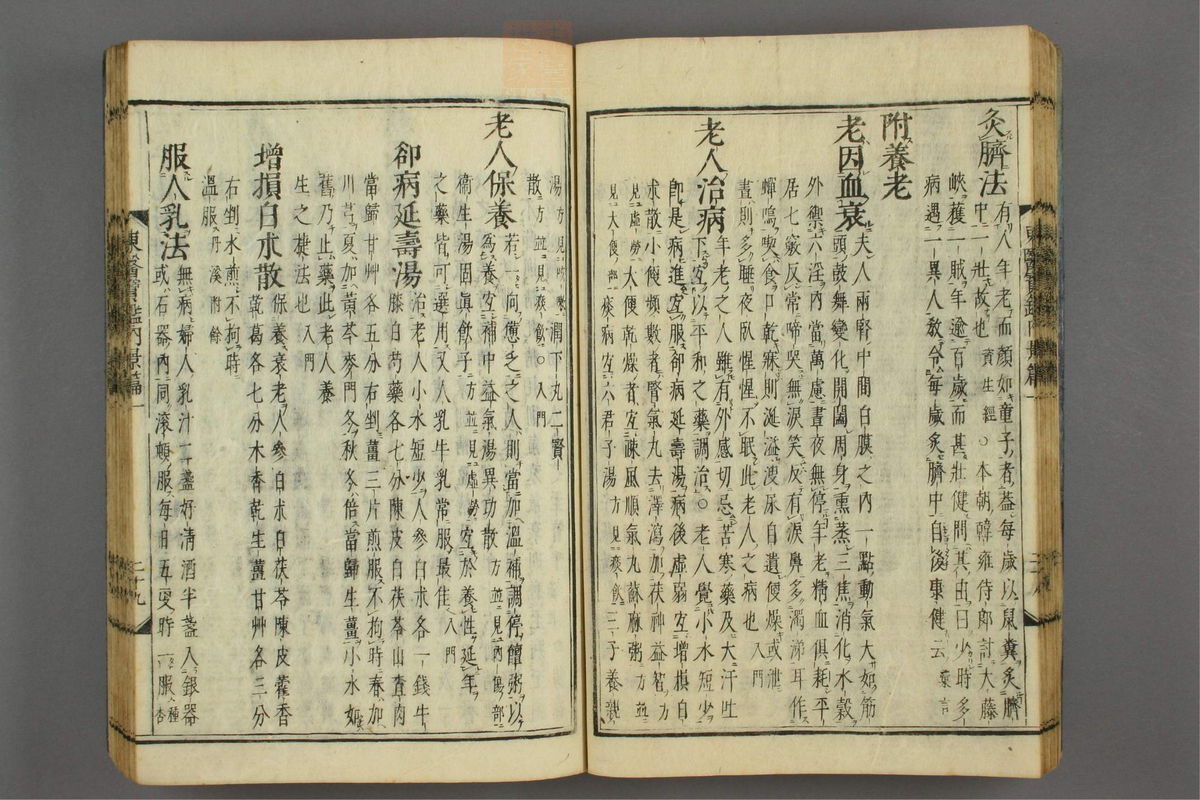 灸臍法有人年老而顔如童子者盖每歲以鼠糞灸臍
中一壯故也資生經○本朝韓雍侍郎討大藤
峽獲一賊年逾百歲而甚壯健問其由曰少時多
病遇一異人教令每歲灸臍中自後康健云彙言
附養老
老因血衰夫人兩腎中間白膜之內一點動氣大如筯
頭鼓舞變化開闔周身熏蒸三焦消化水穀
外禦六淫內當萬慮晝夜無停年老精血俱耗平
居七竅反常啼哭無淚笑反有淚鼻多濁涕耳作
蟬鳴喫食口乾寐則涎溢溲尿自遺便燥或泄
晝則多睡夜臥惺惺不眠此老人之病也入門
老人治病年老之人雖有外感切忌苦寒藥及大汗吐
下宜以平和之藥調治○老人覺小水短少
即是病進宜服却病延壽湯病後虛弱宜增損白
朮散小便頻數者腎氣丸去澤瀉加茯神益智方
見虛勞大便乾燥者宜疎風順氣丸蘇麻粥方並
見大便痰病宜六君子湯方見痰飮三子養親
湯方見咳嗽潤下丸二賢
散二方並見痰飮○入門
老人保養若一向憊乏之人則當加溫補調停饘粥以
爲養宜補中益氣湯異功散方並見內傷部
衛生湯固眞飮子方並見虛勞宜於養性延年
之藥皆可選用又人乳牛乳常服最佳入門
卻病延壽湯治老人小水短少人參白朮各一錢牛
膝白芍藥各七分陳皮白茯苓山査肉
當歸甘艸各五分右剉薑三片煎服不拘時春加
川芎夏加黃芩麥門冬秋冬倍當歸生薑小水如
舊乃止藥此老人養
生之捷法也入門
增損白朮散保養衰老人參白朮白茯苓陳皮藿香
乾葛各七分木香乾生薑甘艸各三分
右剉水煎不拘時
溫服丹溪附餘
服人乳法無病婦人乳汁二盞好清酒半盞入銀器
或石器內同滾頓服每日五更時一服一種杏
東醫寶鑑內景篇一
二十九